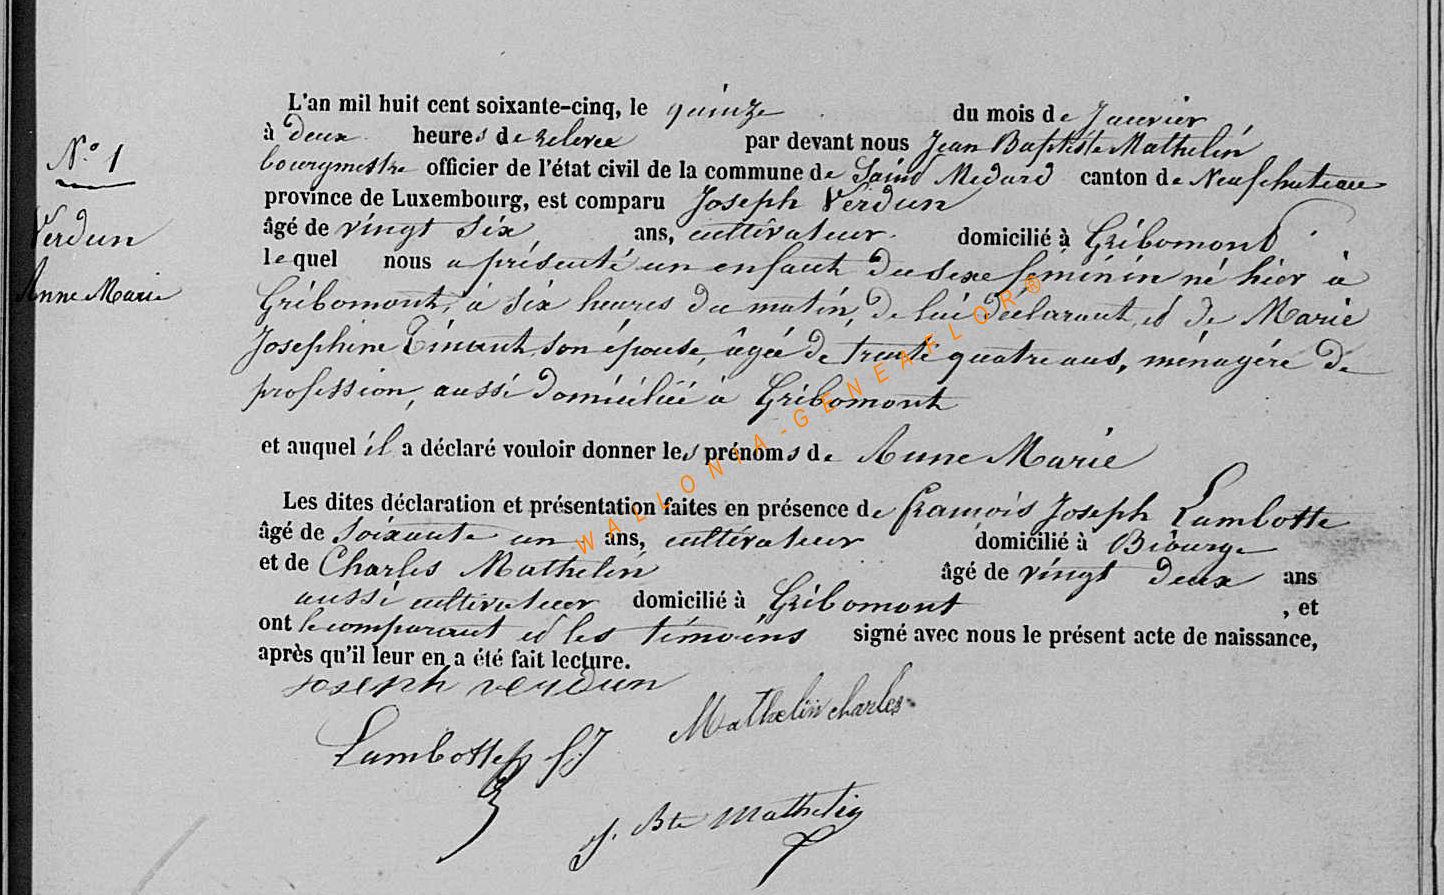 N.° 1
Verdun
Anne Marie
L'an mil huit cent soixante-cinq, le quinze du mois de Janvier
à deux heures de relevée par devant nous Jean Baptiste Mathelin
bourgmestre officier de l'état civil de la commune de Saint Médard canton de Neufchateau
province de Luxembourg, est comparu Joseph Verdun
âgé de vingt six ans, cultivateur domicilié à Gribomont
lequel nous a présenté un enfant du sexe féminin né hier à
Gribomont, à six heures du matin, de lui déclarant, et de Marie
Josephine Tinant, son épouse, âgée de trente quatre ans, ménagère de
profession, aussi domiciliée à Gribomont
et auquel il a déclaré vouloir donner les prénoms de Anne Marie
Les dites déclaration et présentation faites en présence de françois Joseph Lambotte
âgé de soixante un ans, cultivateur domicilié à Biourge
et de Charles Mathelin âgé de vingt deux ans
aussi cultivateur domicilié à Gribomont, et
ont le comparant et les témoins signé avec nous le présent acte de naissance,
après qu'il leur en a été fait lecture.
joseph verdun
Mathelin charles
Lambotte f. J
j. Bte Mathelin
WALLONIA-GENEAFLOR®